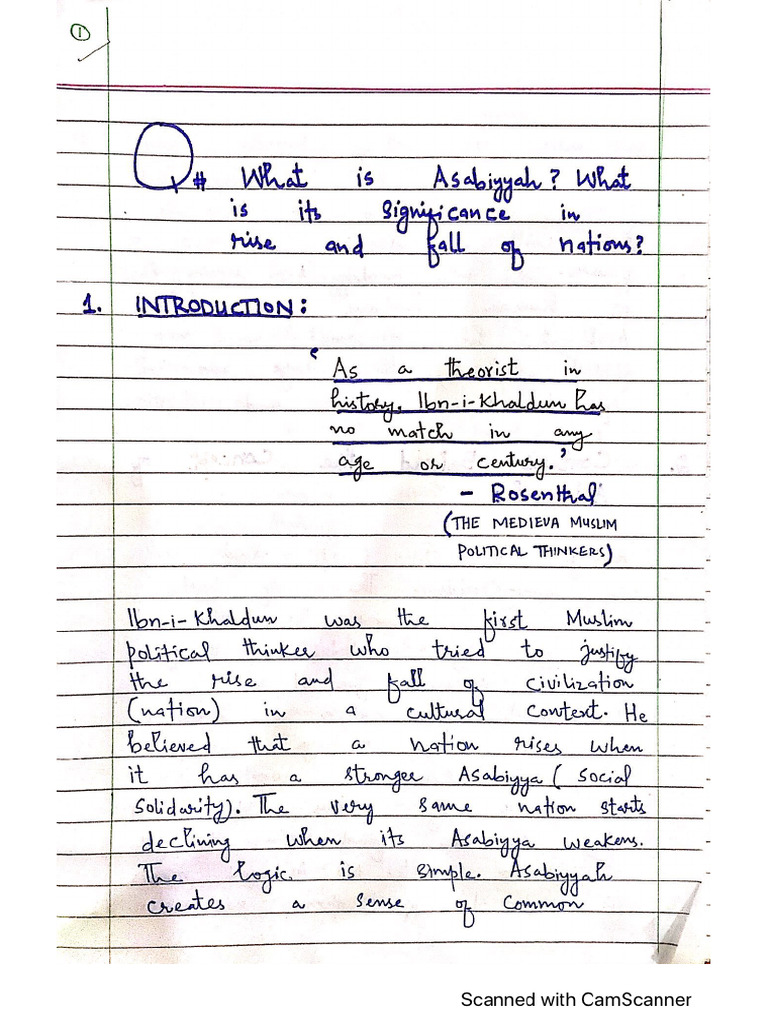 1
Q# What is Asabiyyah? What
is its significance in
rise and fall of nations?
1. INTRODUCTION:
' As a theorist in
history, Ibn-i-Khaldun has
no match in any
age or century.'
- Rosenthal
(THE MEDIEVA MUSLIM
POLITICAL THINKERS)
Ibn-i-Khaldun was the first Muslim
political thinker who tried to justify
the rise and fall of civilization
(nation) in a cultural context. He
believed that a nation rises when
it has a stronger Asabiyya ( social
solidarity). The very same nation starts
declining when its Asabiyya weakens.
The logic is simple. Asabiyyah
creates a sense of common
Scanned with CamScanner